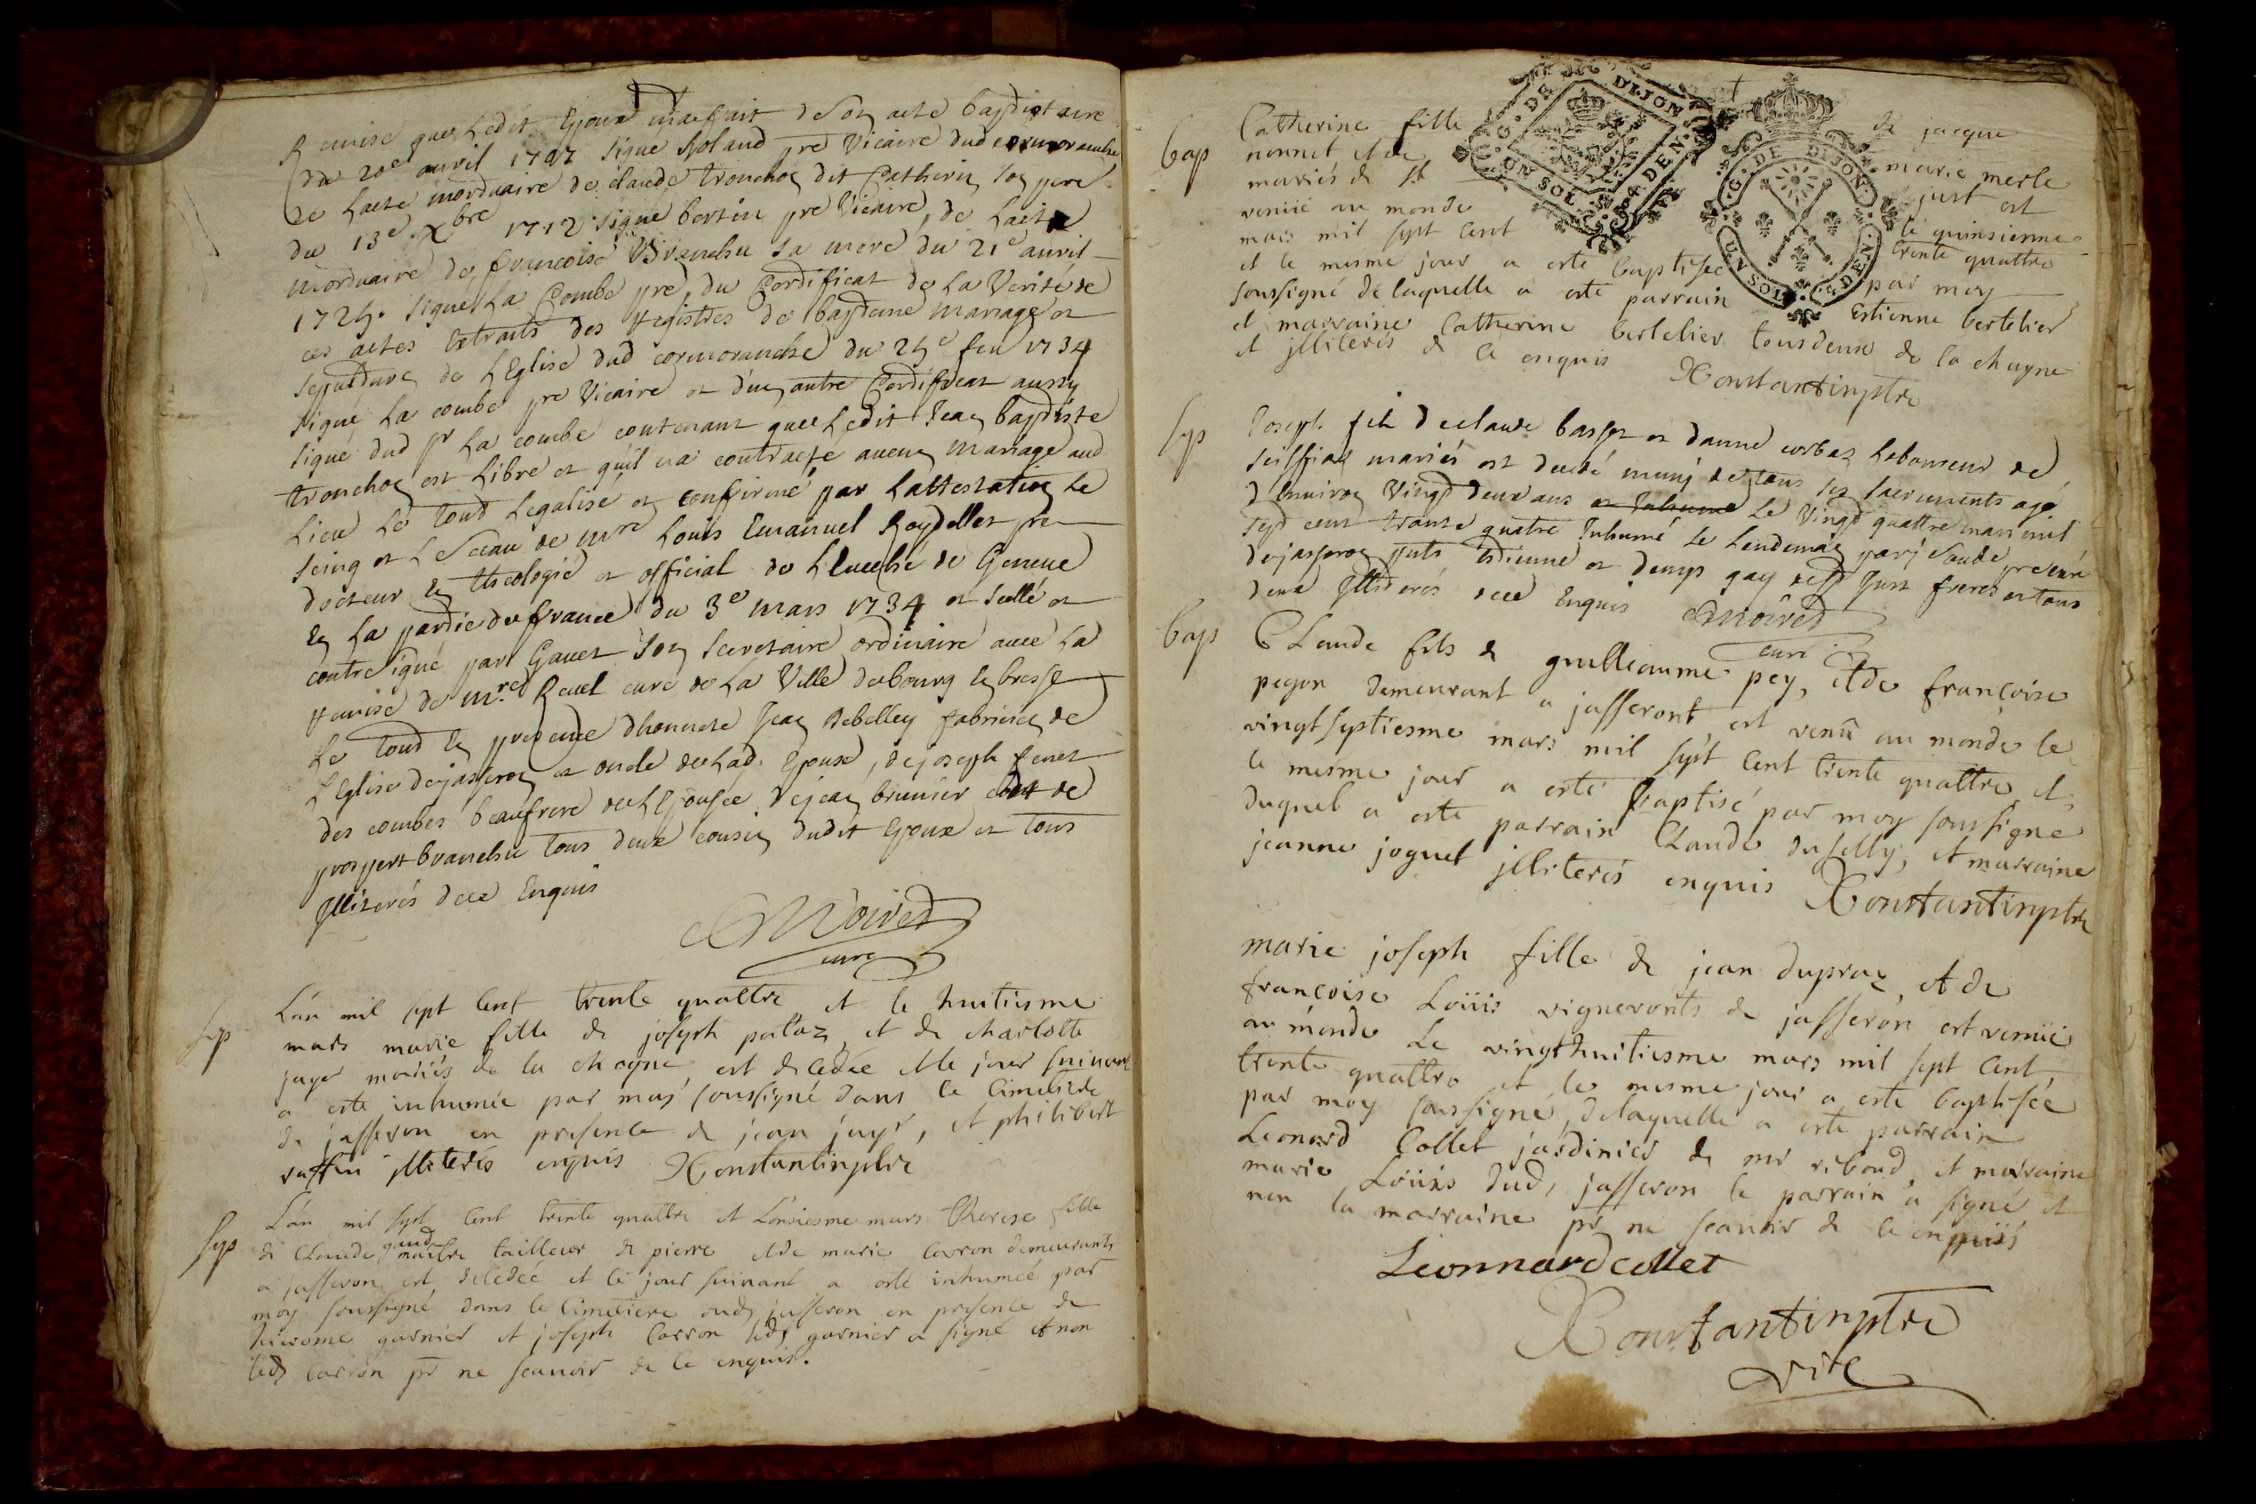 Remise que ledit Epoux m'a fait de son acte baptistaire
du 20e avril 1707 signe Roland pre Vicaire dud cormoranche
de lacte mortuaire de claude tronchon dit Catherin son pere
du 13e Xbre 1712 signe bertin pre Vicaire, de lacte
mortuaire de francoise Branchu sa mere du 21e avril
1724. signe La Combe pre, du Certificat de la Verité de
ces actes extraits des Registres de bapteme mariage et
sepulture de l'Eglise dud cormoranche du 24e feu 1734
signé La combe pre Vicaire et d'un autre Certificat aussy
signé dud Sr La combe contenant que ledit Jean baptiste
tronchon est libre et qu'il n'a contracté aucun mariage aud
lieu le tout legalisé et confirmé par l'attestation le
seing et le sceau de mre Louis Emanuel Reydellet pre
docteur en theologie et official de l'Eveché de Geneve
en la partie de france du 3e mars 1734 et scellé et
contresigné par Gavet son secretaire ordinaire avec la
remise de mre Revel curé de la Ville de bourg en bresse
Le tout en presence d'honnete Jean debelley fabricien de
l'Eglise de jasseron et oncle de lad. Epouse, de joseph fenet
des combes beaufrere de l'Epousee de jean brunier et de
prospert branchu tous deux cousin dudit Epoux et tous
Illiterés de ce Enquis
Moiret
curé
sep
L'an mil sept cent trente quattre et le huitiesme
mars marie fille de joseph palaz, et de charlotte
juger mariés de la chagne, est decedée et le jour suivant
a esté inhumée par moy soussigné dans le cimetiere
de jasseron en presence de jean jugé, et philibert
ruffin illiterés enquis Constantin ptre
Sep
L'an mil sept cent trente quattre et l'onziesme mars therese fille
de Claude gaud maitre tailleur de pierre et de marie carron demeurants
a jasseron est decedée et le jour suivant a esté inhumée par
moy soussigné dans le cimetiere dud jasseron en presence de
hierome garnier et joseph carron led garnier a signé et non
led carron pr ne scavoir de ce enquis.
bap
Catherine fille de jacque
nonnet et de marie merle
mariés de St just est
venüe au monde le quinsienne
mars mil sept cent trente quattre
et le mesme jour a esté baptisée par moy
soussigné de laquelle a esté parrain Estienne bertelier
et marraine Catherine bertelier tous deux de la chagne
et jlliterés de ce enquis Constantin ptre
Sep
Joseph fils de claude basset et danne corbaz laboureur de
seissiat mariés est decedé muni de tous les sacrements agé
d'environ Vingt deux ans et Inhumé le Vingt quattre mars mil
sept cent trante quatre Inhumé le lendemain par je Soude pre curé
de jasseron puts etienne et denys gay de St Just freres et tous
deux Illiterés de ce Enquis Moiret
curé
bap
CLaude fils de guilleaume pey, et de françoise
pegon demeurant a jasseront, est venü au monde le
vingtseptiesme mars mil sept cent trente quattre et
le mesme jour a esté Baptisé par moy soussigné
duquel a esté parrain Claude duselly, et marraine
jeanne joguet jlliterés enquis Constantin ptre
marie joseph fille de jean dupraz, et de
françoise Loüis vigneronts de jasseron est venüe
au monde Le vingthuitiesme mars mil sept cent
trente quattre et le mesme jour a esté baptisée
par moy soussigné, delaquelle a esté parrain
Leonard Collet jardinier de mr riboud, et marraine
marie Loüis dud, jasseron le parrain a signé et
non la marraine pr ne scavoir de ce enquis
Leonnard collet
Constantin ptre
vire
G. DE DIJON
UN SOL 4 DEN.
G. DE DIJON
UN SOL 4 DEN.